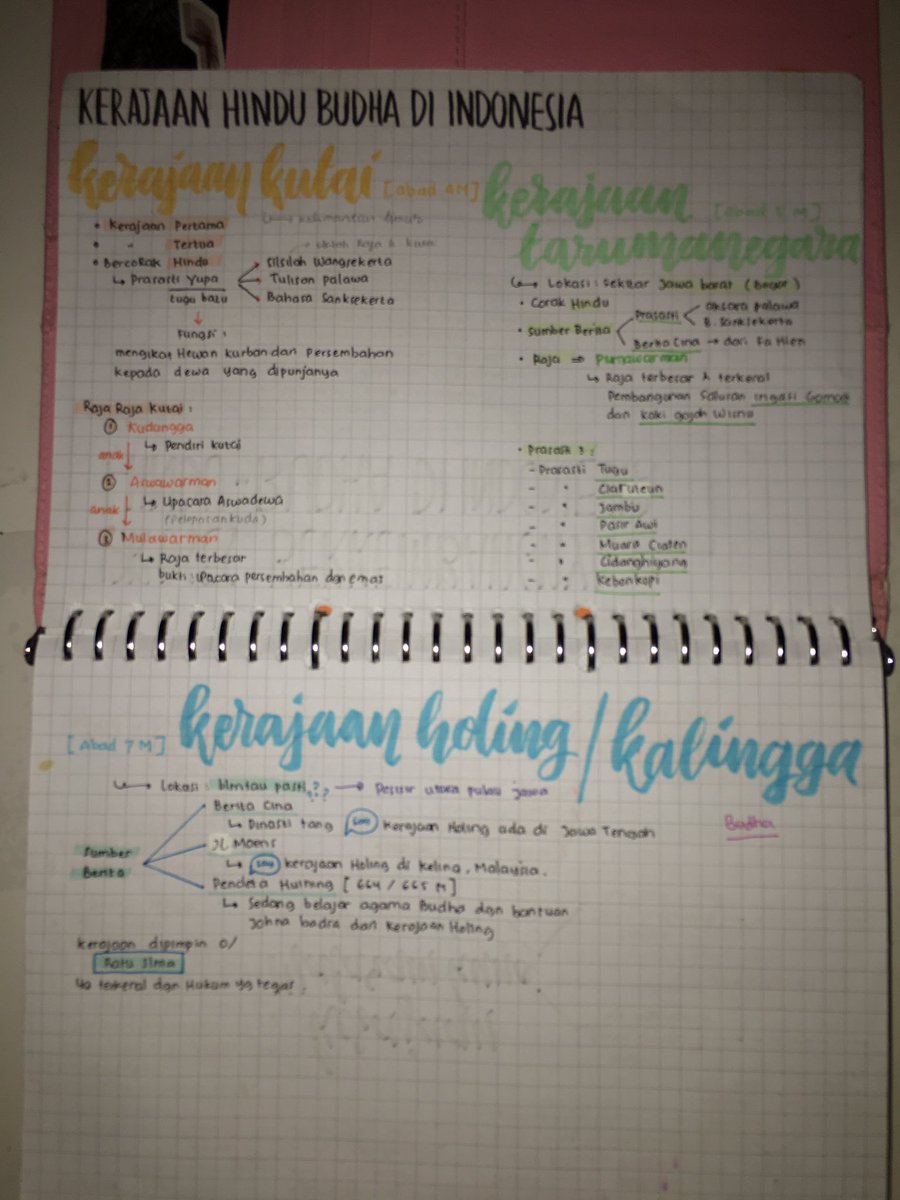 KERAJAAN HINDU BUDHA DI INDONESIA
kerajaan kutai [abad 4M]
↳ Kalimantan timur
• Kerajaan Pertama
• " Tertua
• Bercorak Hindu
↳ Prasasti Yupa
tugu batu
Silsilah Wangsekerta
Tulisan palawa
Bahasa Sanksekerta
↓
Fungsi :
mengikat Hewan kurban dan Persembahan
kepada dewa yang dipunjanya
Raja Raja Kutai :
① Kudungga
↳ Pendiri kutai
anak ↓
② Aswawarman
↳ Upacara Aswadewa
(Pelepasan kuda)
anak ↓
③ Mulawarman
↳ Raja terbesar
bukti : upacara persembahan dgn emas
kerajaan [abad 5 M]
tarumanegara
↳ Lokasi : sekitar Jawa barat (Bogor)
• Corak Hindu
• Sumber Berita
Prasasti
aksara palawa
B. Sanksekerta
Berita Cina → dari Fa Hien
• Raja ⇒ Purnawarman
↳ Raja terbesar & terkenal
Pembangunan Saluran irigasi Gomati
dan kaki gajah Wisnu
• Prasasti :
- Prasasti Tugu
- " Ciaruteun
- " Jambu
- " Pasir Awi
- " Muara Cianten
- " Cidanghiyang
- " Kebonkopi
[Abad 7 M] kerajaan holing / kalingga
↳ Lokasi : blm tau pasti ?? → Pesisir utara pulau jawa
Budha
Sumber
Berita
Berita Cina
↳ Dinasti tang kerajaan Holing ada di Jawa Tengah
JL Moens
↳ kerajaan Holing di Keling, Malaysia.
Pendeta Huining [664 / 665 M]
↳ Sedang belajar agama Budha dgn bantuan
Johna badra dari Kerajaan Holing
kerajaan dipimpin o/
Ratu Sima
yg terkenal dgn Hukum yg tegas.